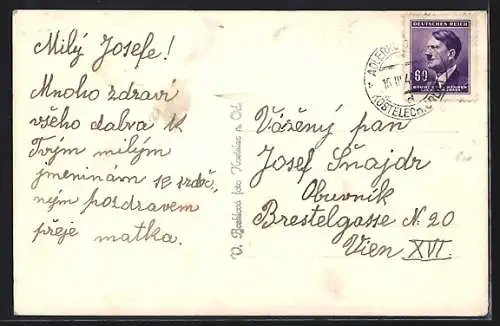 Milý Josefe!
Mnoho zdraví
všeho dobra k
Tvým milým
jmeninám se srdeč-
ným pozdravem
přeje matka.
DEUTSCHES REICH
60
BÖHMEN UND MÄHREN
ADLERKOSTELETZ
KOSTELEC N. ORL.
Vážený pan
Josef Šnajdr
Obuvník
Brestelgasse N. 20
Vien XVI.